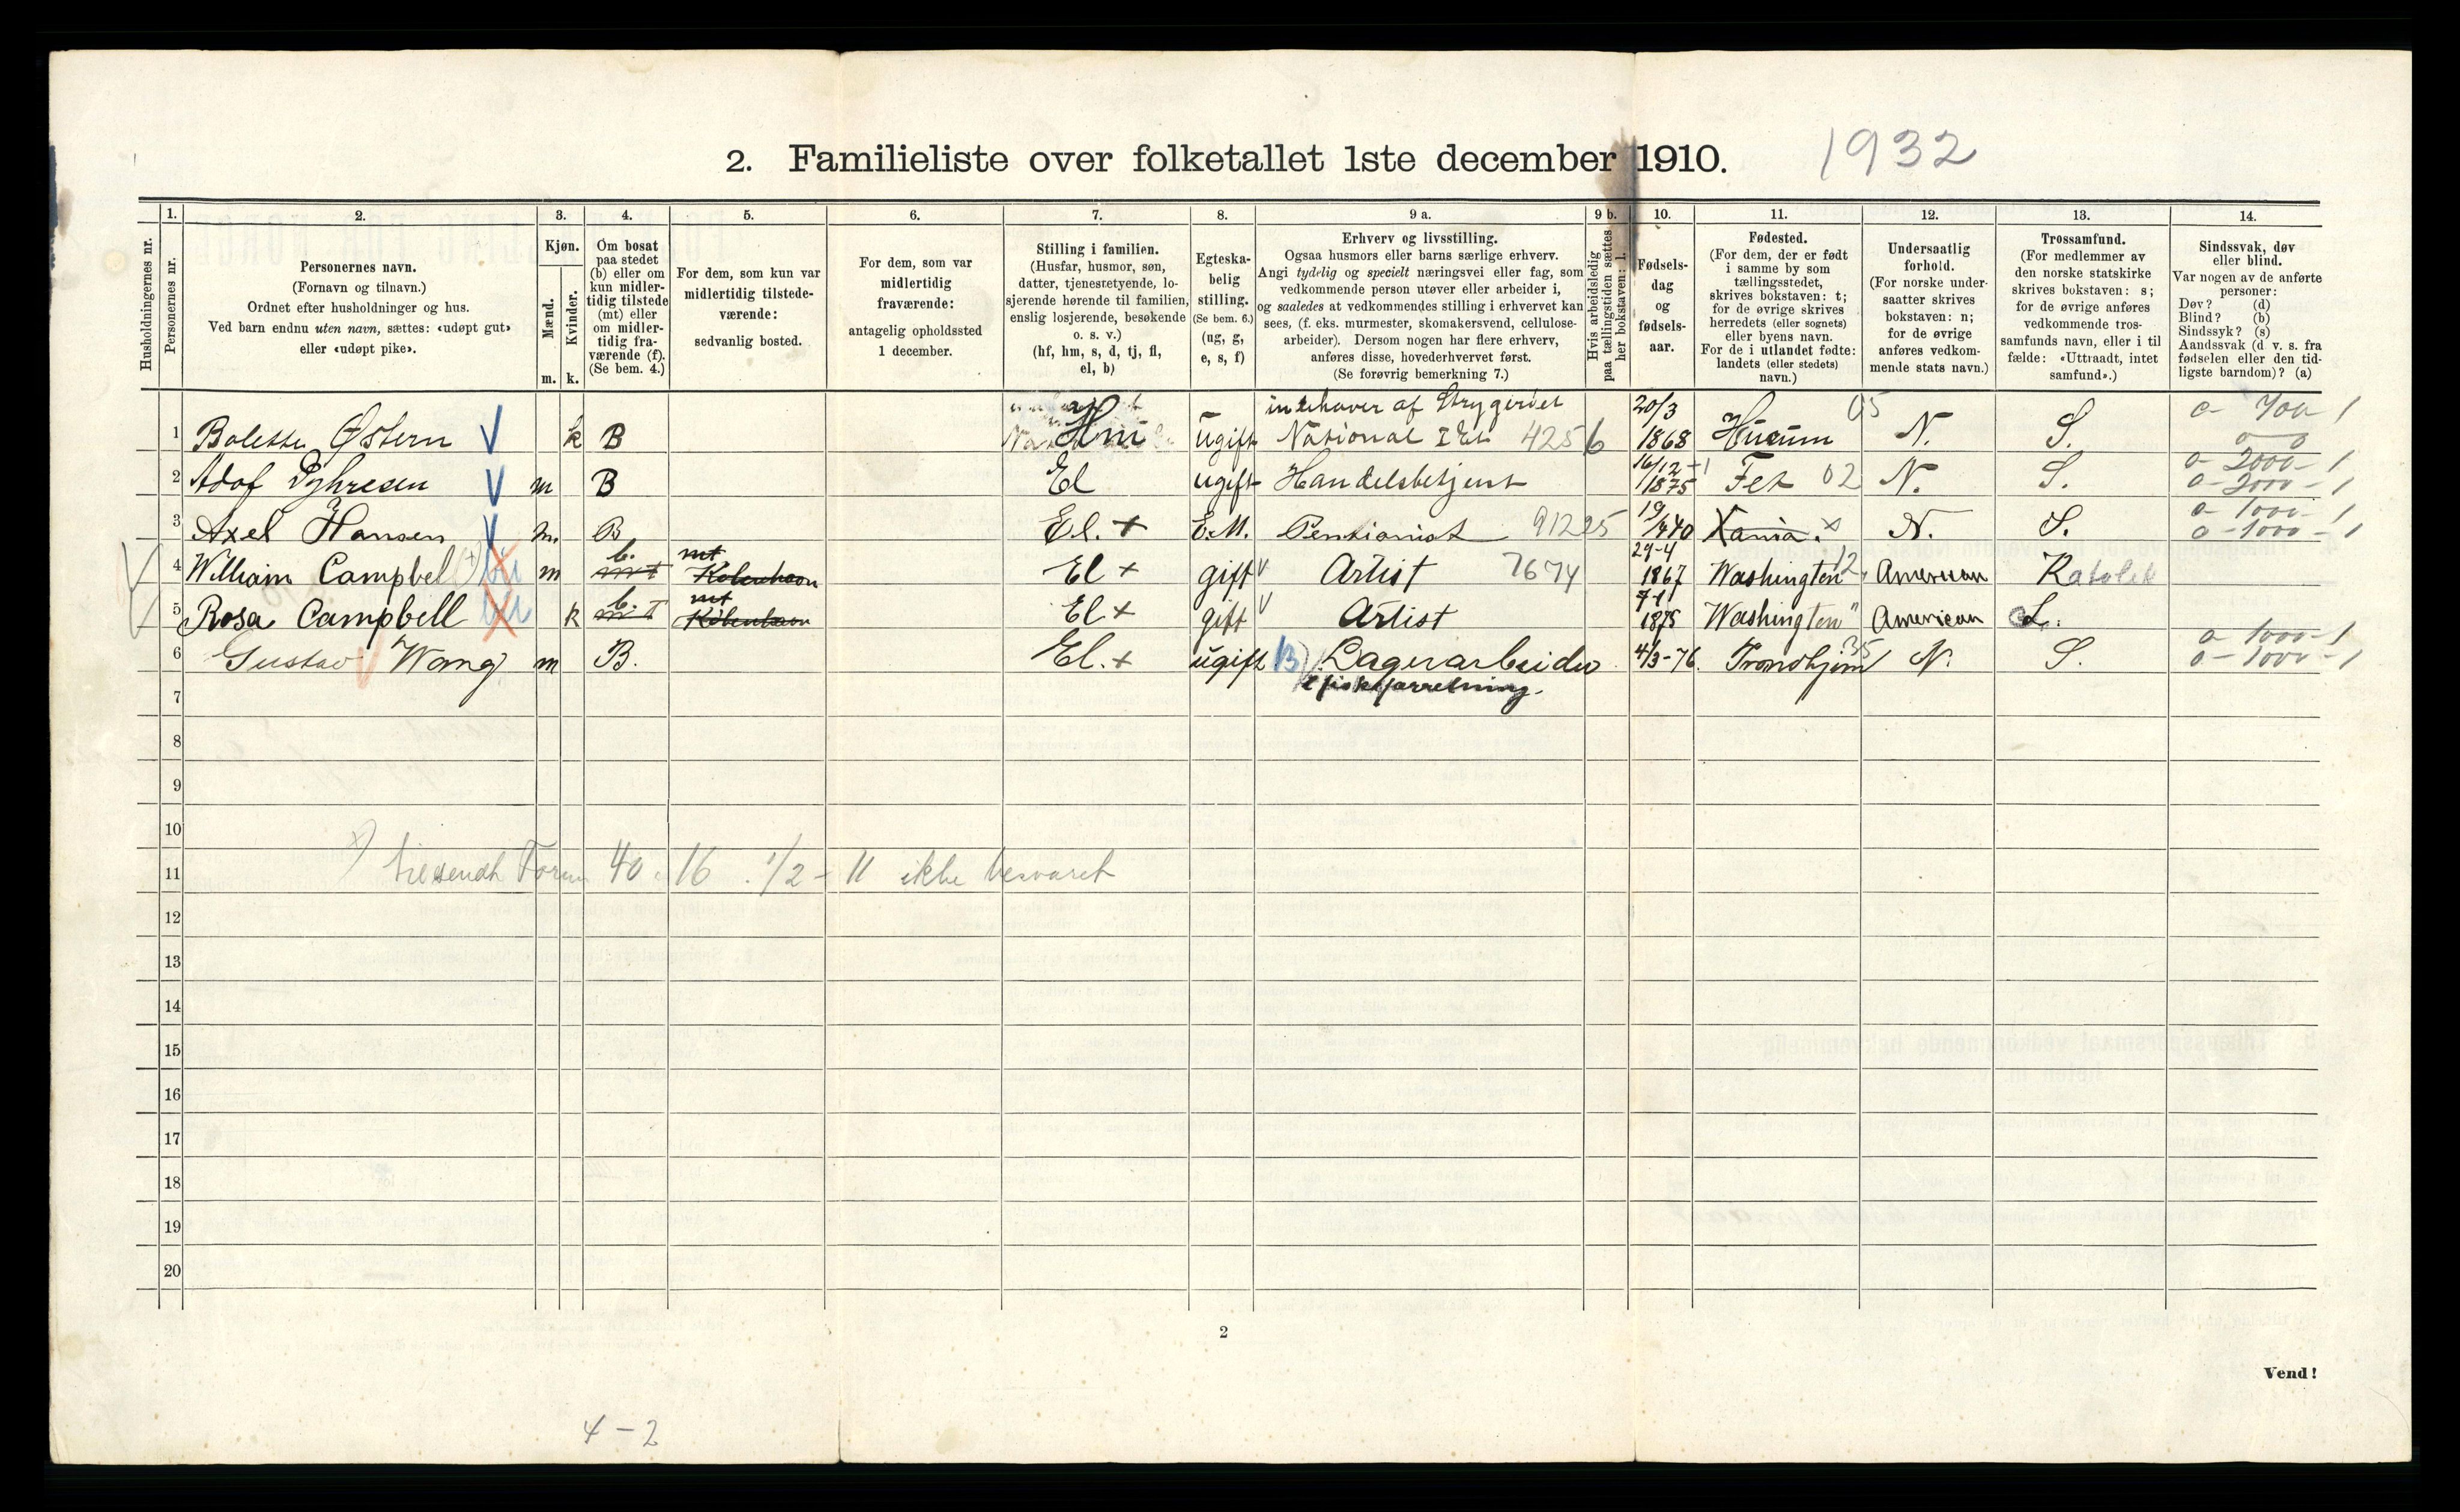 2. Familieliste over folketallet 1ste december 1910.
1932
Husholdningernes nr.
1.
Personernes nr.
2.
Personernes navn.
(Fornavn og tilnavn.)
Ordnet efter husholdninger og hus.
Ved barn endnu uten navn, sættes: «udøpt gut»
eller «udøpt pike».
3.
Kjøn.
Mænd.
m.
Kvinder.
k.
4.
Om bosat
paa stedet
(b) eller om
kun midler-
tidig tilstede
(mt) eller
om midler-
tidig fra-
værende (f).
(Se bem. 4.)
5.
For dem, som kun var
midlertidig tilstede-
værende:
sedvanlig bosted.
6.
For dem, som var
midlertidig
fraværende:
antagelig opholdssted
1 december.
7.
Stilling i familien.
(Husfar, husmor, søn,
datter, tjenestetyende, lo-
sjerende hørende til familien,
enslig losjerende, besøkende
o. s. v.)
(hf, hm, s, d, tj, fl,
el, b)
8.
Egteska-
belig
stilling.
(Se bem. 6.)
(ug, g,
e, s, f)
9 a.
Erhverv og livsstilling.
Ogsaa husmors eller barns særlige erhverv.
Angi tydelig og specielt næringsvei eller fag, som
vedkommende person utøver eller arbeider i,
og saaledes at vedkommendes stilling i erhvervet kan
sees, (f. eks. murmester, skomakersvend, cellulose-
arbeider). Dersom nogen har flere erhverv,
anføres disse, hovederhvervet først.
(Se forøvrig bemerkning 7.)
9 b.
Hvis arbeidsledig
paa tællingstiden sættes
her bokstaven: l.
10.
Fødsels-
dag
og
fødsels-
aar.
11.
Fødested.
(For dem, der er født
i samme by som
tællingsstedet,
skrives bokstaven: t;
for de øvrige skrives
herredets (eller sognets)
eller byens navn.
For de i utlandet fødte:
landets (eller stedets)
navn.)
12.
Undersaatlig
forhold.
(For norske under-
saatter skrives
bokstaven: n;
for de øvrige
anføres vedkom-
mende stats navn.)
13.
Trossamfund.
(For medlemmer av
den norske statskirke
skrives bokstaven: s;
for de øvrige anføres
vedkommende tros-
samfunds navn, eller i til
fælde: «Uttraadt, intet
samfund».)
14.
Sindssvak, døv
eller blind.
Var nogen av de anførte
personer:
Døv? (d)
Blind? (b)
Sindssyk? (s)
Aandssvak (d. v. s. fra
fødselen eller den tid-
ligste barndom)? (a)
1 Bolette Østern V k B Hm ugift indehaver af Strygeriet National 4256 20/3 1868 Hurum 05 N. S. 0 - 700 1
2 Adof Dyhresen V m B El ugift Handelsbetjent 16/12 1875 Fet 02 N. S. 0 - 2000 - 1 0 - 2000 - 1
3 Axel Hansen V m. B El. + E.M. Pensionist 91225 19/4 40 Xania. x N. S. 0 - 1000 - 1 0 - 1000 - 1
4 William Campbel m b. mt mt København El + gift V Artist 7674 29-4 1867 Washington 12 American Katolik
5 Rosa Campbell k b. mT mt København El + gift V Artist 7-1 1875 Washington " American L.
6 Gustav Wang m B. El. + ugift B) Lagerarbeider i fiskeforretning. 4/3-76. Trondhjem 35 N. S. 0 - 1000 - 1 0 - 1000 - 1
7
8
9
10
11 x) tilsendt Form 40. 16. 1/2 - 11 ikke besvaret
12
13
14
15
16
17
18
19
20
2
Vend!
4 - 2